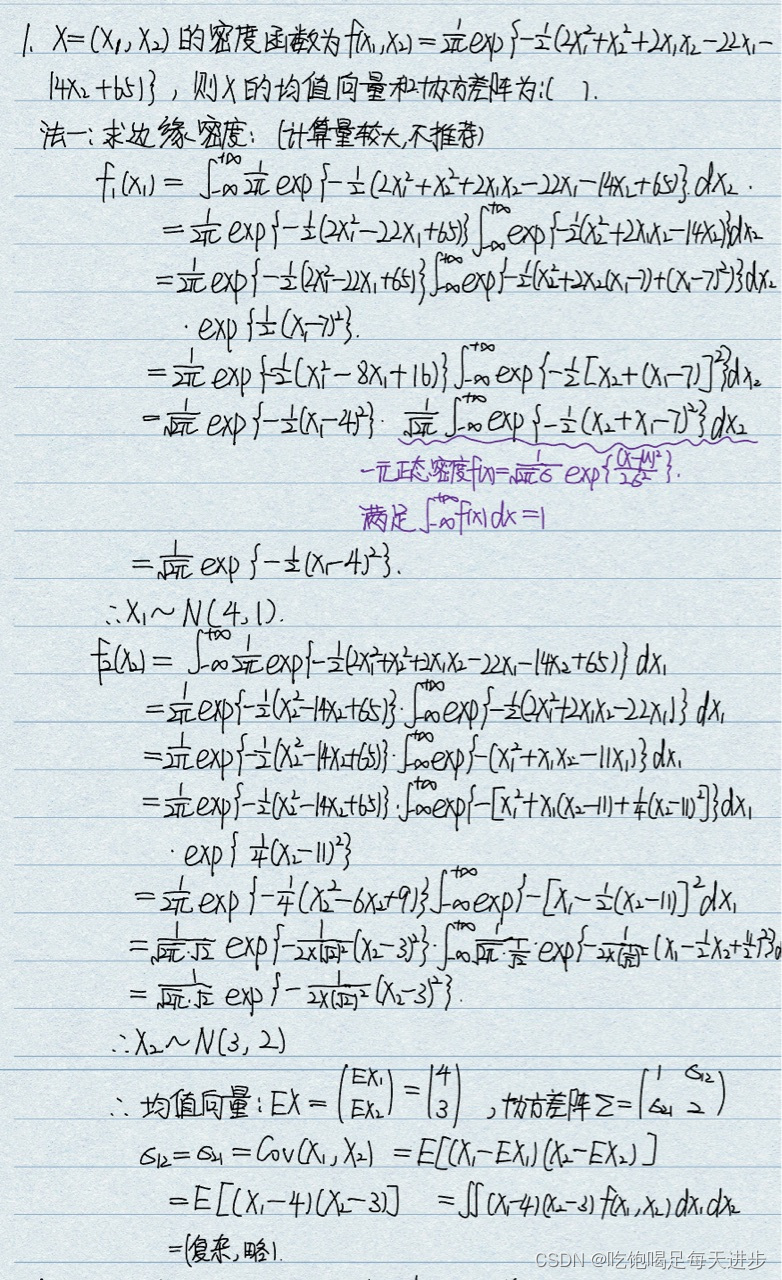 1. X=(X₁,X₂)的密度函数为f(x₁,x₂)=1/2π exp{-1/2(2x₁²+x₂²+2x₁x₂-22x₁-
14x₂+65)}, 则X的均值向量和协方差阵为:( ).
法一:求边缘密度:(计算量较大,不推荐)
f₁(x₁)=∫_{-∞}^{+∞} 1/2π exp{-1/2(2x₁²+x₂²+2x₁x₂-22x₁-14x₂+65)}dx₂.
=1/2π exp{-1/2(2x₁²-22x₁+65)}∫_{-∞}^{+∞}exp{-1/2(x₂²+2x₁x₂-14x₂)}dx₂
=1/2π exp{-1/2(2x₁²-22x₁+65)}∫_{-∞}^{+∞}exp{-1/2(x₂²+2x₂(x₁-7)+(x₁-7)²)}dx₂
·exp{1/2(x₁-7)²}.
=1/2π exp{-1/2(x₁²-8x₁+16)}∫_{-∞}^{+∞}exp{-1/2[x₂+(x₁-7)]²}dx₂
=1/√2π exp{-1/2(x₁-4)²}·1/√2π∫_{-∞}^{+∞}exp{-1/2(x₂+x₁-7)²}dx₂
一元正态密度f(x)=1/√2πσ exp{(x-μ)²/2σ²}.
满足∫_{-∞}^{+∞}f(x)dx=1
=1/√2π exp{-1/2(x₁-4)²}.
∴X₁~N(4,1).
f₂(x₂)=∫_{-∞}^{+∞} 1/2π exp{-1/2(2x₁²+x₂²+2x₁x₂-22x₁-14x₂+65)}dx₁
=1/2π exp{-1/2(x₂²-14x₂+65)}·∫_{-∞}^{+∞}exp{-1/2(2x₁²+2x₁x₂-22x₁)}dx₁
=1/2π exp{-1/2(x₂²-14x₂+65)}·∫_{-∞}^{+∞}exp{-(x₁²+x₁x₂-11x₁)}dx₁
=1/2π exp{-1/2(x₂²-14x₂+65)}·∫_{-∞}^{+∞}exp{-[x₁²+x₁(x₂-11)+1/4(x₂-11)²]}dx₁
·exp{1/4(x₂-11)²}
=1/2π exp{-1/4(x₂²-6x₂+9)}∫_{-∞}^{+∞}exp{-[x₁-1/2(x₂-11)]²dx₁
=1/√2π·√2 exp{-1/2×(√2)²(x₂-3)²}·∫_{-∞}^{+∞} 1/√2π·1/√2·exp{-1/2×(1/√2)²(x₁-1/2x₂+11/2)²}d
=1/√2π·√2 exp{-1/2×(√2)²(x₂-3)²}.
∴X₂~N(3,2)
∴均值向量:EX=(EX₁ EX₂)=(4 3), 协方差阵Σ=(1 σ₁₂ σ₂₁ 2)
σ₁₂=σ₂₁=Cov(X₁,X₂)=E[(X₁-EX₁)(X₂-EX₂)]
=E[(X₁-4)(X₂-3)] =∬(x₁-4)(x₂-3)f(x₁,x₂)dx₁dx₂
=(复杂,略).
CSDN @吃饱喝足每天进步